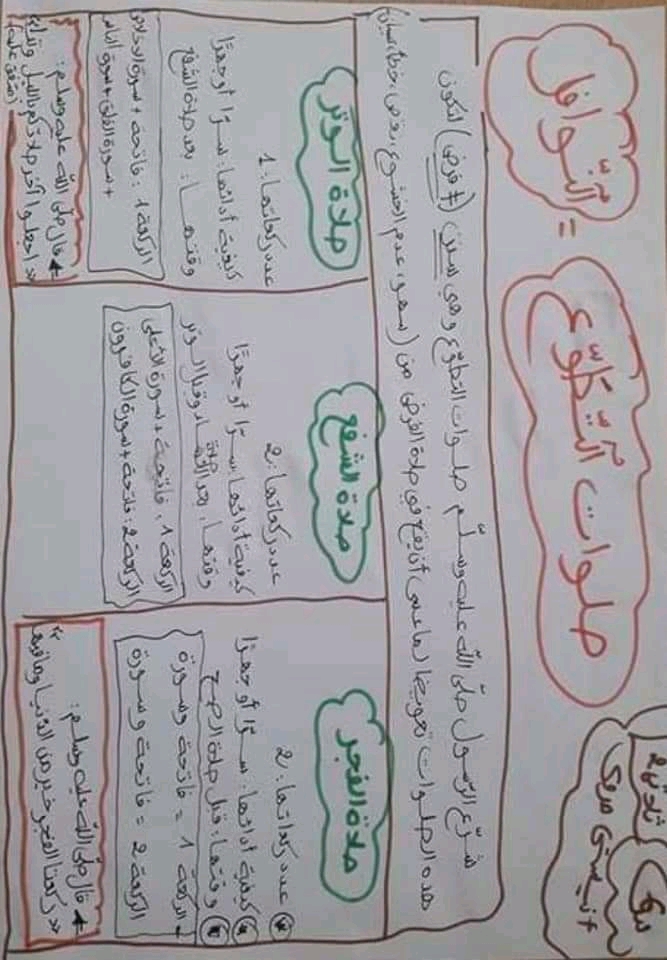 النّوافل = صلوات التّطوّع
شرّع الرّسول صلّى اللّه عليه وسلّم صلوات التطوّع وهي سنن (≠ فرض) لتكون
هذه الصلوات تعويضا لما عسى أن يقع في صلاة الفرض من (سهو، عدم الخشوع، نقص، خطأ، نسيان)
صلاة الفجر
عدد ركعاتها: 2
كيفية أدائها: سرّا أو جهرًا
وقتها: قبل صلاة الصبح
الركعة 1 = فاتحة وسورة
الركعة 2 = فاتحة وسورة
قال صلّى اللّه عليه وسلم:
«ركعتا الفجر خير من الدّنيا وما فيها»
صلاة الشفع
عدد ركعاتها: 2
كيفية أدائها: سرّا أو جهرًا
وقتها: بعد صلاة العشاء وقبل الوتر
الركعة 1: فاتحة + سورة الأعلى
الركعة 2: فاتحة + سورة الكافرون
صلاة الوتر
عدد ركعاتها: 1
كيفية أدائها: سرّا أو جهرًا
وقتها: بعد صلاة الشفع
الركعة 1: فاتحة + سورة الإخلاص
+ سورة الفلق + سورة الناس
قال صلّى اللّه عليه وسلم:
«اجعلوا آخر صلاتكم بالليل وترا»
(متفق عليه)